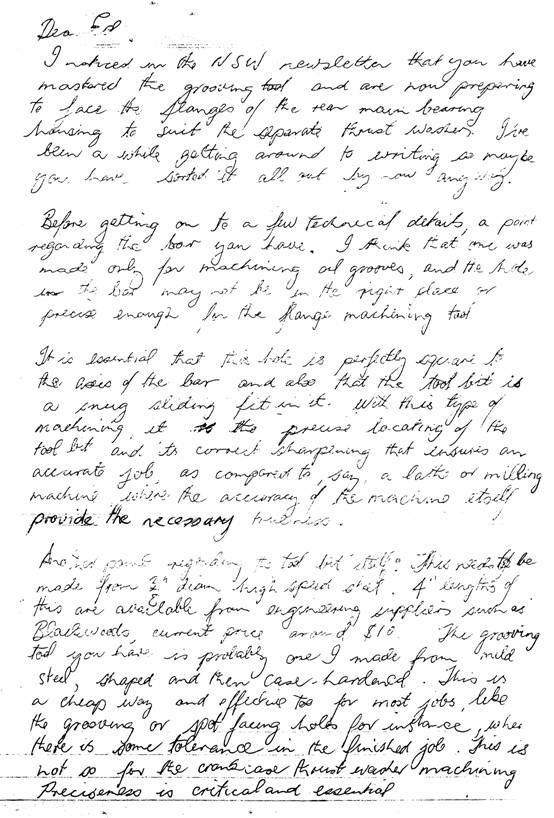 Dear Ed.
I noticed in the NSW newsletter that you have
mastered the grooving tool and are now preparing
to face the flanges of the rear main bearing
housing to suit the separate thrust washers. I've
been a while getting around to writing so maybe
you have sorted it all out by now anyway.
Before getting on to a few technical details, a point
regarding the bar you have. I think that one was
made only for machining oil grooves, and the hole
in the bar may not be in the right place or
precise enough for the flange machining tool
It is essential that this hole is perfectly square to
the axis of the bar and also that the tool bit is
a snug sliding fit in it. With this type of
machining it is the precise locating of the
tool bit and its correct sharpening that ensures an
accurate job, as compared to, say, a lathe or milling
machine, where the accuracy of the machine itself
provide the necessary trueness.
Another point regarding the tool bit itself. This needs to be
made from diam high speed steel. 4" lengths of
this are available from engineering suppliers such as
Blackwoods, current price around $10. The grooving
tool you have is probably one I made from mild
steel, shaped and then case-hardened. This is
a cheap way and effective too for most jobs, like
the grooving or spot facing holes for instance, where
there is some tolerance in the finished job. This is
not so for the crankcase thrust washer machining
Preciseness is critical and essential